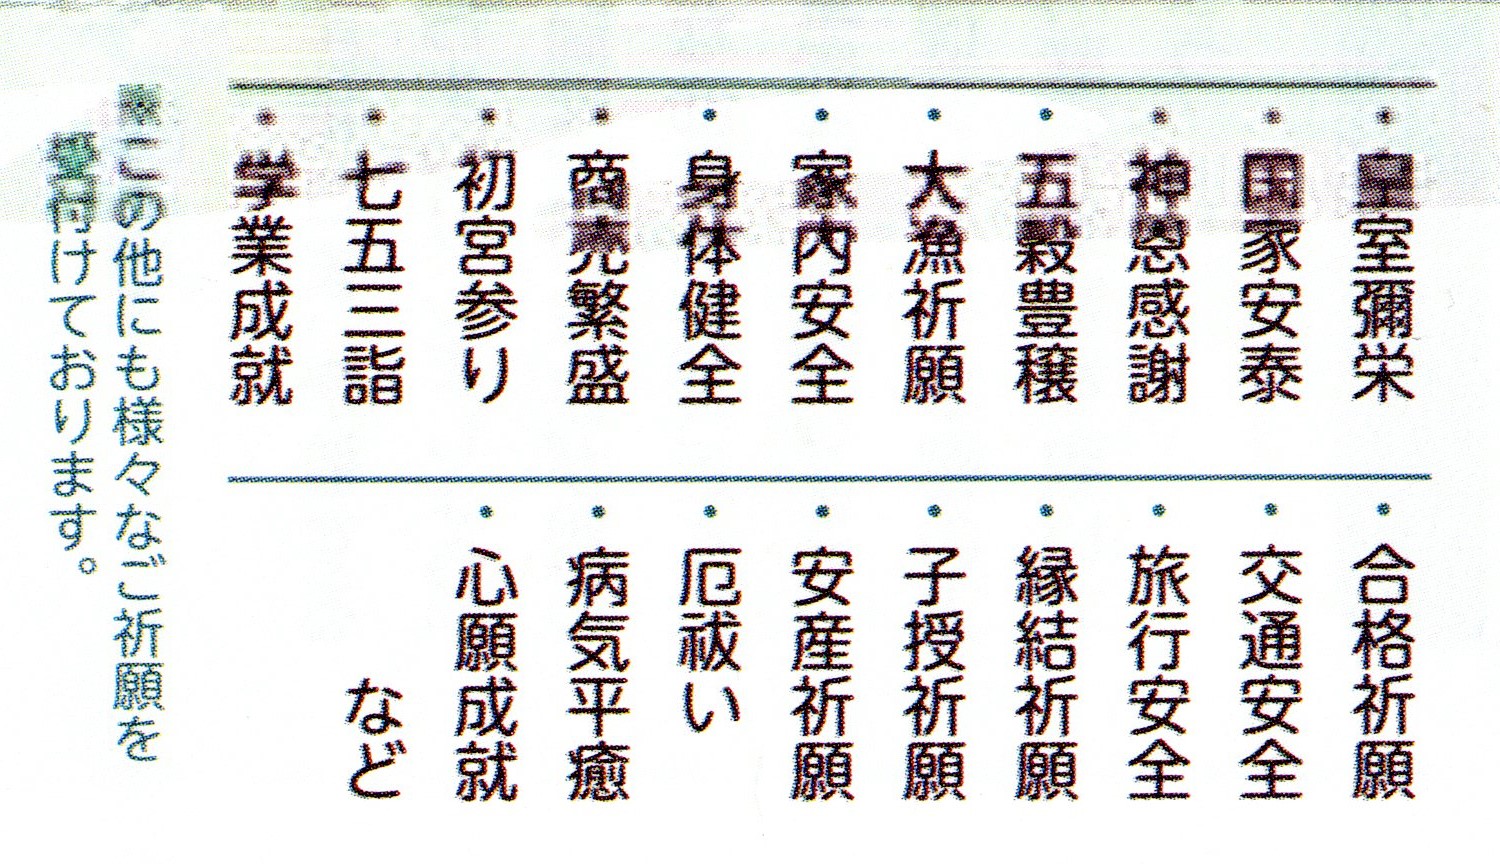 ・皇室彌栄
・国家安泰
・神恩感謝
・五穀豊穣
・大漁祈願
・家内安全
・身体健全
・商売繁盛
・初宮参り
・七五三詣
・学業成就
・合格祈願
・交通安全
・旅行安全
・縁結祈願
・子授祈願
・安産祈願
・厄祓い
・病気平癒
・心願成就
など
※この他にも様々なご祈願を
受付けております。